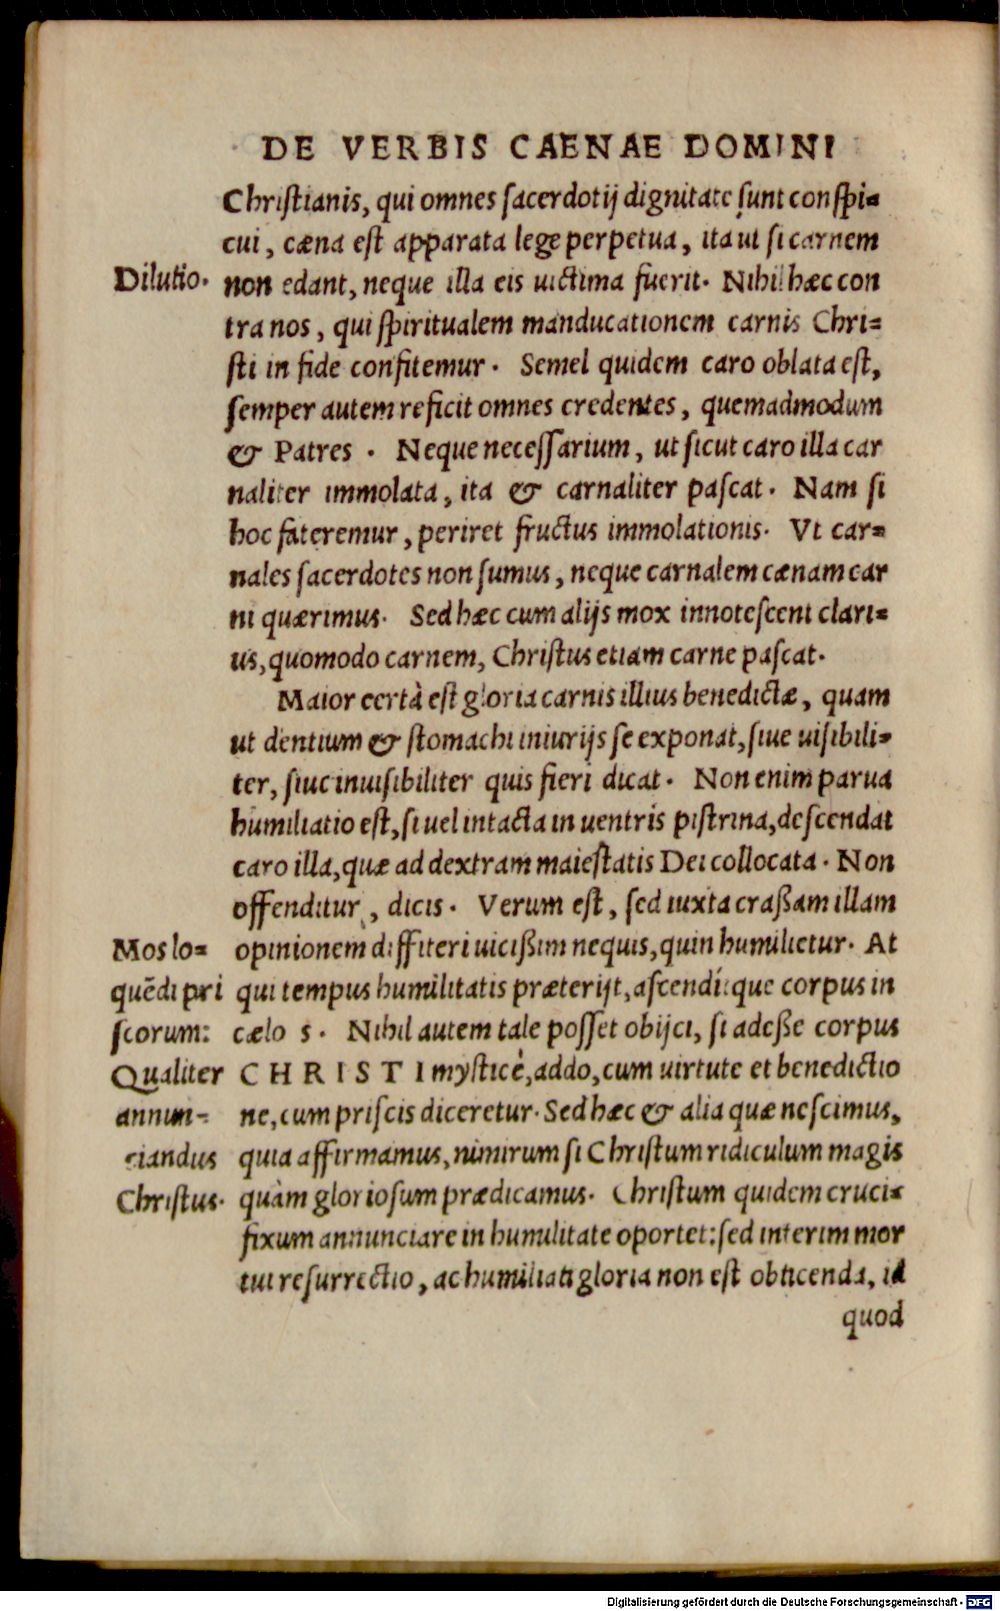 DE VERBIS CAENAE DOMINI
Christianis, qui omnes sacerdotij dignitate sunt conspi=
cui, cæna est apparata lege perpetua, ita ut si carnem
Dilutio.
non edant, neque illa eis uictima fuerit. Nihil hæc con
tra nos, qui spiritualem manducationem carnis Chri=
sti in fide confitemur. Semel quidem caro oblata est,
semper autem reficit omnes credentes, quemadmodum
& Patres. Neque necessarium, ut sicut caro illa car
naliter immolata, ita & carnaliter pascat. Nam si
hoc fateremur, periret fructus immolationis. Vt car=
nales sacerdotes non sumus, neque carnalem cænam car
ni quærimus. Sed hæc cum alijs mox innotescent clari=
us, quomodo carnem, Christus etiam carne pascat.
Maior certà est gloria carnis illius benedictæ, quam
ut dentium & stomachi iniurijs se exponat, siue uisibili=
ter, siue inuisibiliter quis fieri dicat. Non enim parua
humiliatio est, si uel intacta in uentris pistrina, descendat
caro illa, quæ ad dextram maiestatis Dei collocata. Non
offenditur, dicis. Verum est, sed iuxta craßam illam
opinionem diffiteri uicißim nequis, quin humilietur. At
qui tempus humilitatis præterijt, ascenditque corpus in
cælo s. Nihil autem tale posset obijci, si adeße corpus
CHRISTI mysticè, addo, cum uirtute et benedictio
ne, cum priscis diceretur. Sed hæc & alia quæ nescimus,
quia affirmamus, nimirum si Christum ridiculum magis
quàm gloriosum prædicamus. Christum quidem cruci=
fixum annunciare in humilitate oportet: sed interim mor
tui resurrectio, ac humiliati gloria non est obticenda, id
Mos lo=
quēdi pri
scorum:
Qualiter
annun-
ciandus
Christus.
quod
Digitalisierung gefördert durch die Deutsche Forschungsgemeinschaft - DFG